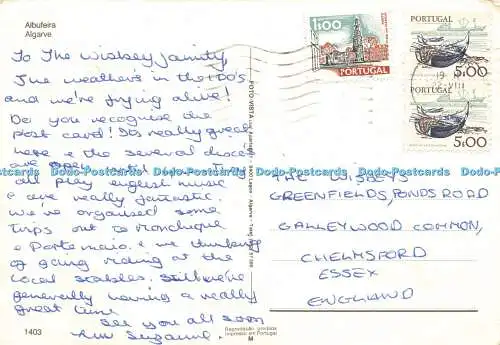 Albufeira
Algarve
To The Wisbey family,
The weather's in the 100's
and we're frying alive!
Do you recognise the
post card? It's really great
here & the several discos
are open till
all play english music
& are really fantastic.
We've organised some
trips out to Monchique
& Portomaio. & we thinking
of going riding at the
local stables. Still we're
generally having a really
great time
See you all soon
luv Suzanne.
1403
FOTO-VISTA
Reprodução proibida
Impresso em Portugal
M
1$00
PORTUGAL
PORTUGAL
5$00
19
VIII
PORTUGAL
5$00
THE WISBEYS
GREENFIELDS, PONDS ROAD
GALLEYWOOD COMMON,
CHELMSFORD
ESSEX
ENGLAND
Dodo-Postcards Dodo-Postcards Dodo-Postcards Dodo-Postcards